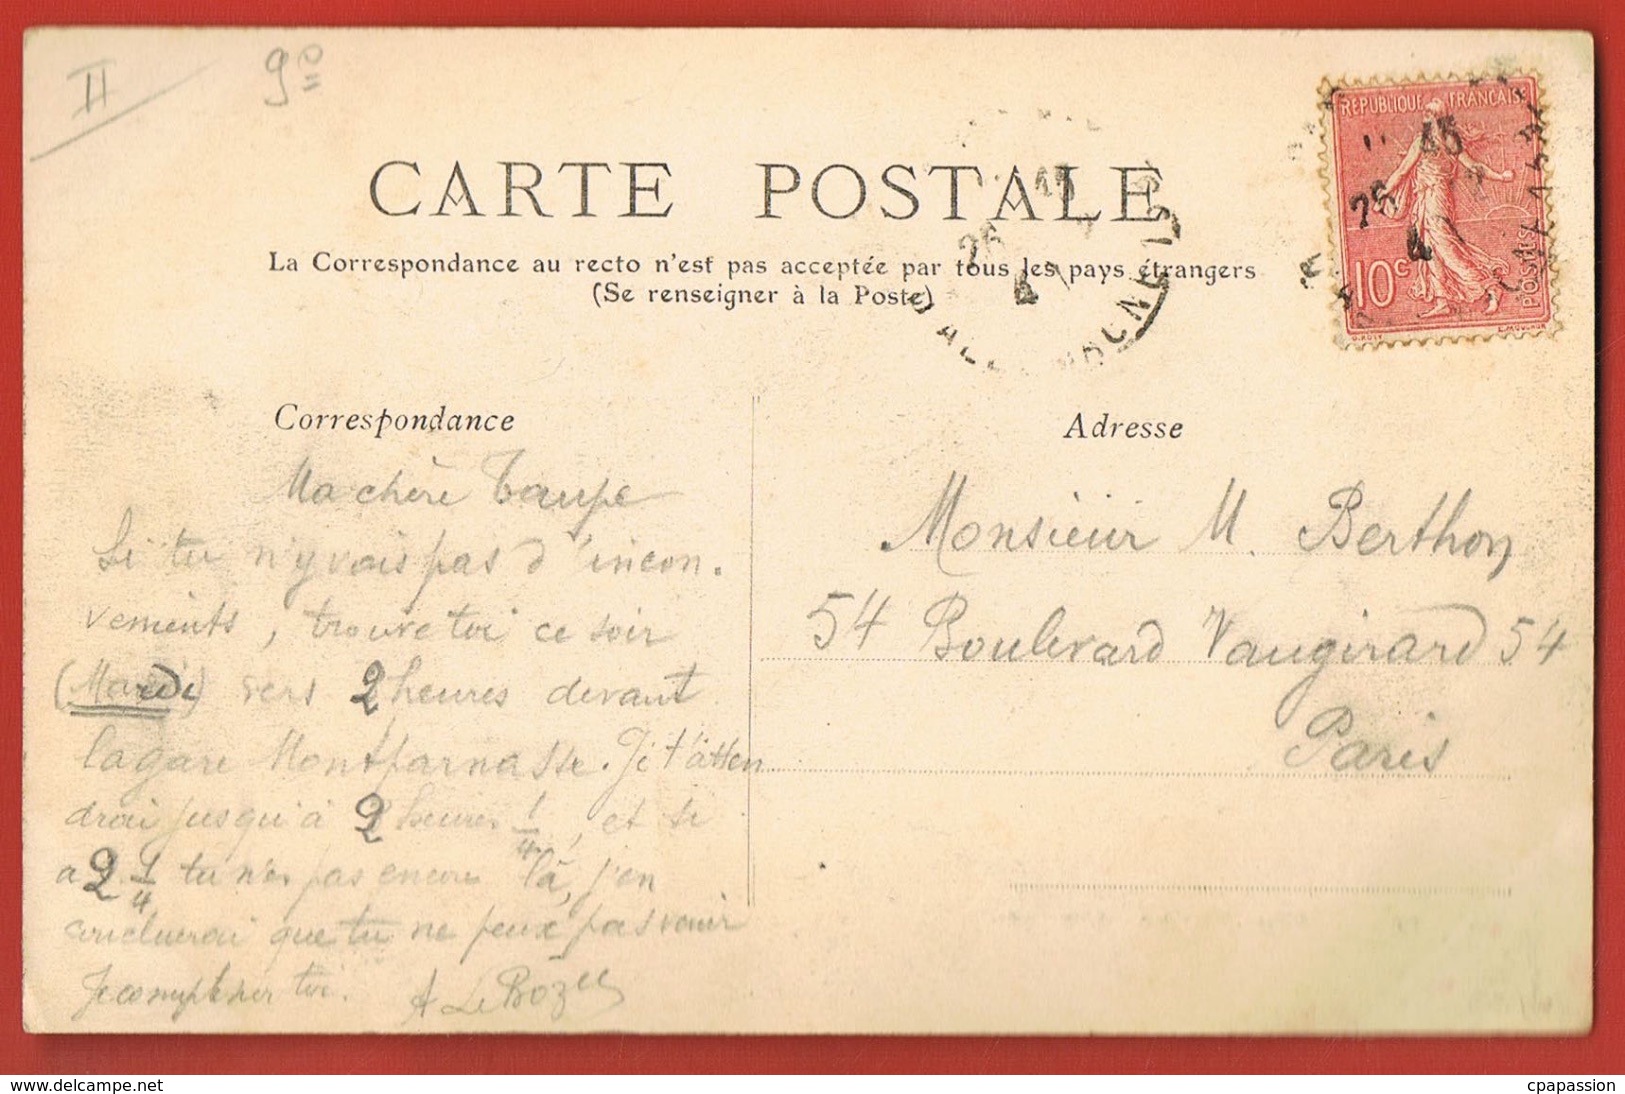 II
9
CARTE POSTALE
La Correspondance au recto n'est pas acceptée par tous les pays étrangers
(Se renseigner à la Poste)
REPUBLIQUE FRANÇAISE
10c
POSTES
Correspondance
Ma chère Taupe
Si tu n'y vois pas d'incon.
vénients, trouve toi ce soir
(Mardi) vers 2 heures devant
la gare Montparnasse. Je t'atten
drai jusqu'à 2 heures 1/4, et si
a 2 1/4 tu n'es pas encore là, j'en
concluerai que tu ne peux pas venir
Je compte sur toi. A Le Bozec
Adresse
Monsieur M. Berthon
54 Boulevard Vaugirard 54
Paris
www.delcampe.net
cpapassion